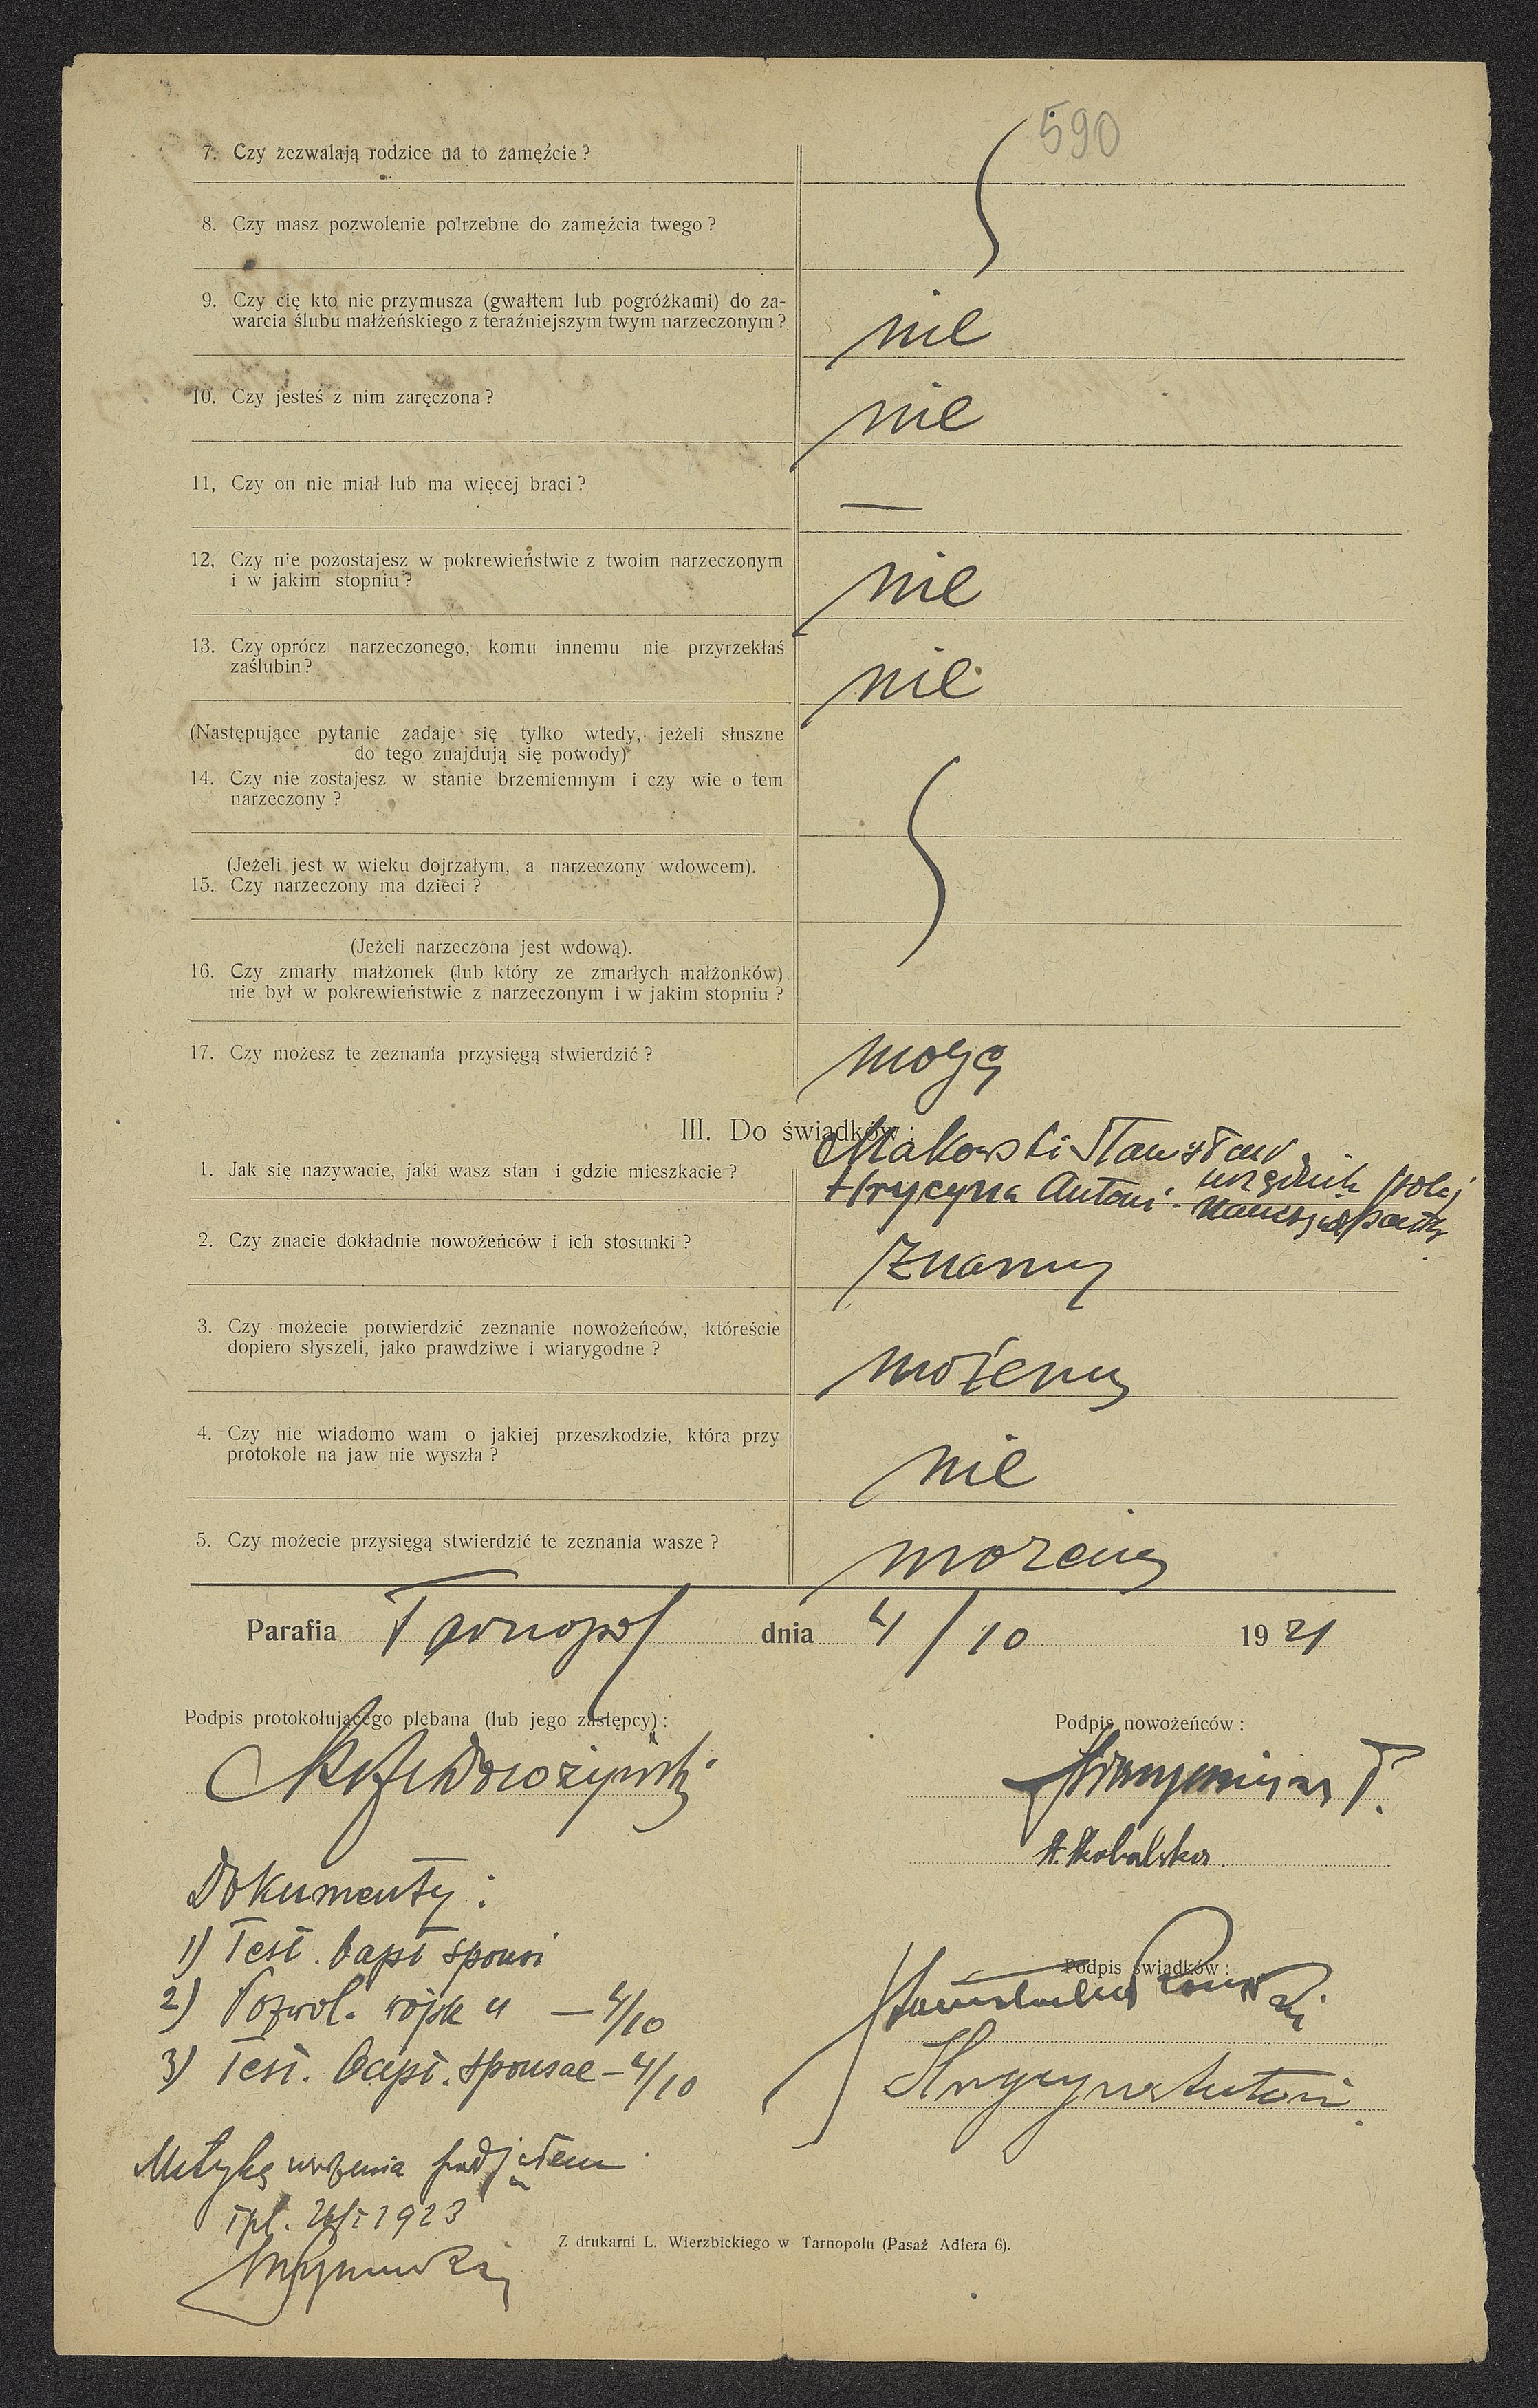 590
7. Czy zezwalają rodzice na to zamęźcie ?
8. Czy masz pozwolenie potrzebne do zamęźcia twego ?
9. Czy cię kto nie przymusza (gwałtem lub pogróżkami) do za-
warcia ślubu małżeńskiego z teraźniejszym twym narzeczonym ?
nie
10. Czy jesteś z nim zaręczona ?
nie
11, Czy on nie miał lub ma więcej braci ?
—
12, Czy nie pozostajesz w pokrewieństwie z twoim narzeczonym
i w jakim stopniu ?
nie
13. Czy oprócz narzeczonego, komu innemu nie przyrzekłaś
zaślubin ?
nie
(Następujące pytanie zadaje się tylko wtedy, jeżeli słuszne
do tego znajdują się powody)
14. Czy nie zostajesz w stanie brzemiennym i czy wie o tem
narzeczony ?
(Jeżeli jest w wieku dojrzałym, a narzeczony wdowcem).
15. Czy narzeczony ma dzieci ?
(Jeżeli narzeczona jest wdową).
16. Czy zmarły małżonek (lub który ze zmarłych małżonków)
nie był w pokrewieństwie z narzeczonym i w jakim stopniu ?
17. Czy możesz te zeznania przysięgą stwierdzić ?
mogę
III. Do świadków :
1. Jak się nazywacie, jaki wasz stan i gdzie mieszkacie ?
Makowski Stanisław
Hrycyna Antoni - urzędnik
2. Czy znacie dokładnie nowożeńców i ich stosunki ?
znamy
3. Czy możecie potwierdzić zeznanie nowożeńców, któreście
dopiero słyszeli, jako prawdziwe i wiarygodne ?
możemy
4. Czy nie wiadomo wam o jakiej przeszkodzie, która przy
protokole na jaw nie wyszła ?
nie
5. Czy możecie przysięgą stwierdzić te zeznania wasze ?
możemy
Parafia Tarnopol dnia 4/10 1921
Podpis protokołującego plebana (lub jego zastępcy) :
Podpis nowożeńców :
Dokumenty :
1) Test. bapt sponsi
2) Pozwol. wojsk " — 4/10
3) Test. bapt. sponsae – 4/10
Podpis świadków :
Hrycyna Antoni
Metykę urodzenia podjąłem
Tpl. 1923
Z drukarni L. Wierzbickiego w Tarnopolu (Pasaż Adlera 6).